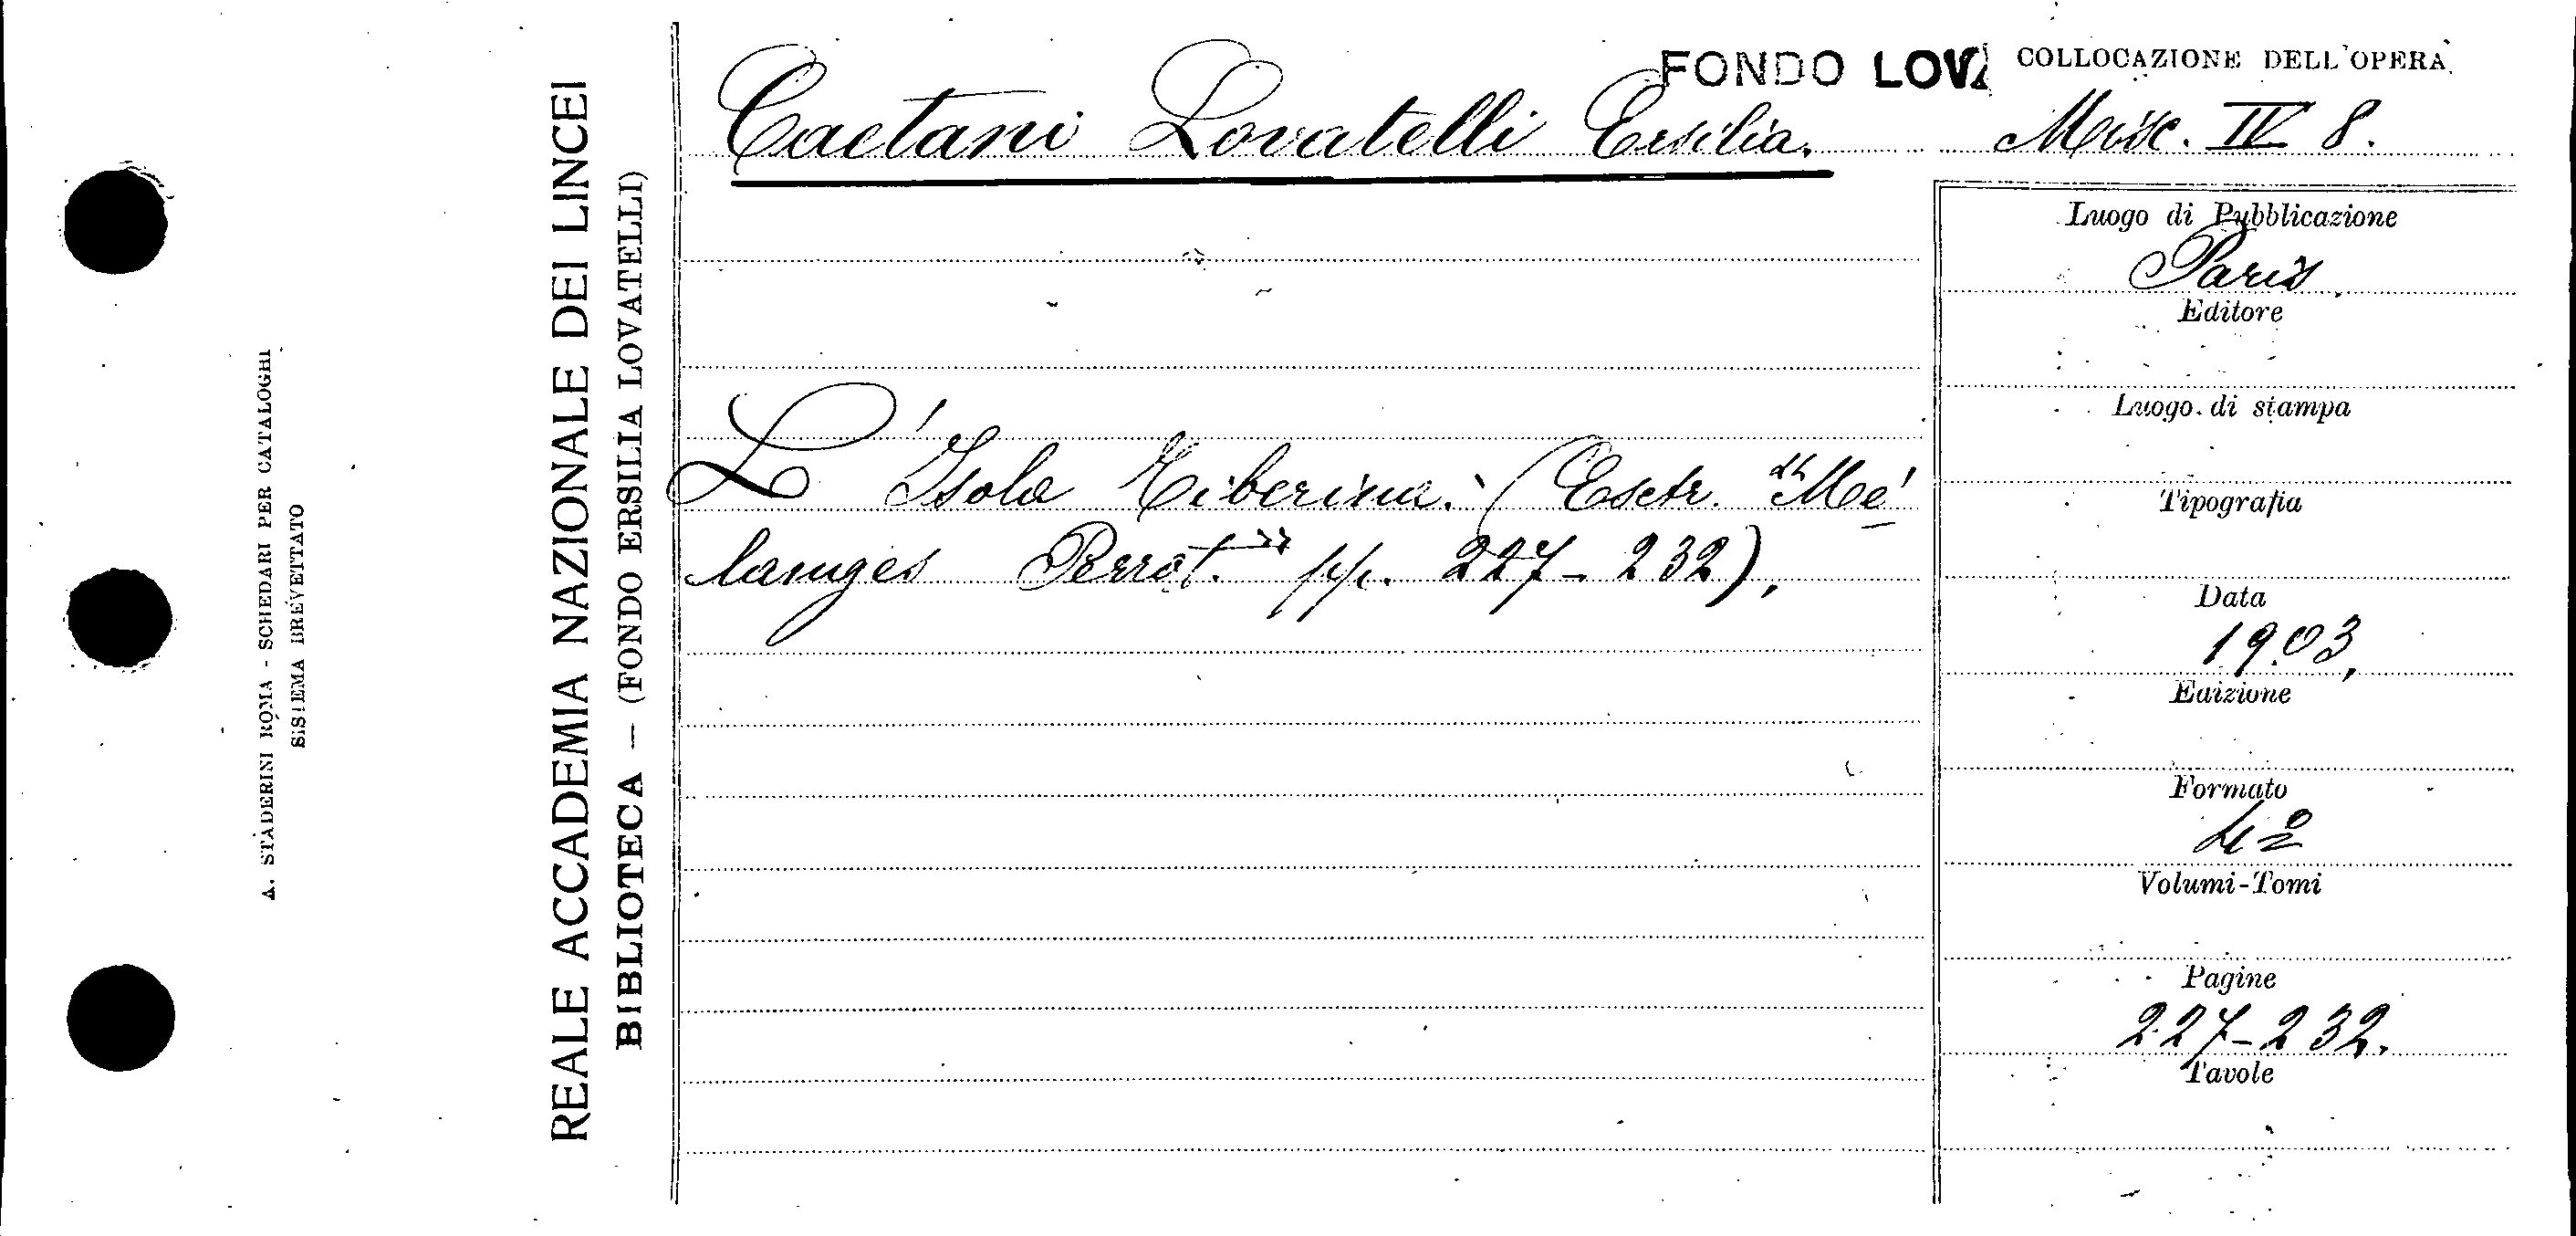 A. STADERINI ROMA - SCHEDARI PER CATALOGHI
SISTEMA BREVETTATO
REALE ACCADEMIA NAZIONALE DEI LINCEI
BIBLIOTECA — (FONDO ERSILIA LOVATELLI)
FONDO LOVA
COLLOCAZIONE DELL'OPERA
Caetani Lovatelli Ersilia.
Misc. IV 8.
L'Isola Tiberina. (Estr. "Mé
langes Perrot." pp. 227-232).
Luogo di Pubblicazione
Paris
Editore
Luogo di stampa
Tipografia
Data
1903,
Edizione
Formato
Volumi-Tomi
Pagine
227-232.
Tavole